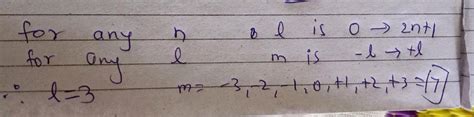 for any n l is 0 → 2n+1
for any l m is -l → +l
∴ l=3 m= -3, -2, -1, 0, +1, +2, +3 = 7